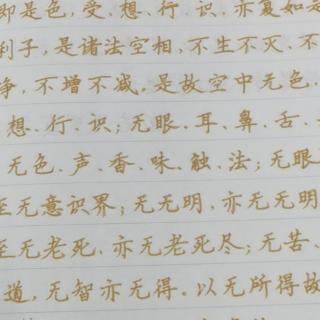 即是色，受、想、行、识，亦复如是
利子，是诸法空相，不生不灭、不
净，不增不减，是故空中无色，
想、行、识；无眼、耳、鼻、舌、
无色、声、香、味、触、法；无眼
至无意识界；无无明，亦无无明
至无老死，亦无老死尽；无苦、
道，无智亦无得。以无所得故